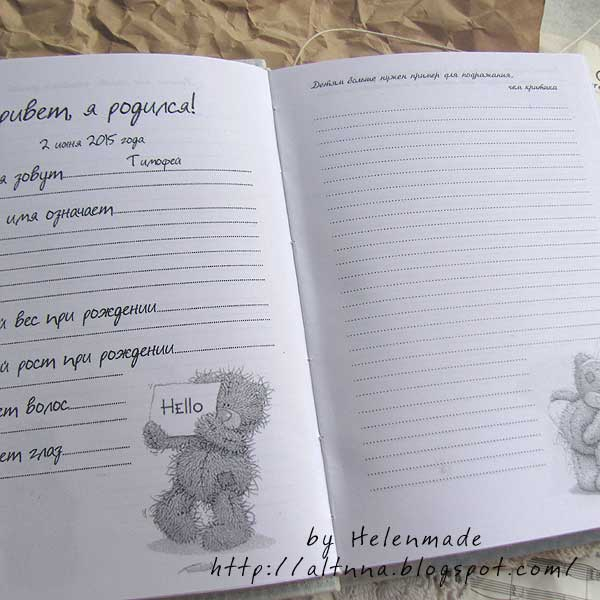 ривет, я родился!
2 июня 2015 года
я зовут Тимофеа
имя означает
й вес при рождении
й рост при рождении
ет волос
ет глаз
Hello
Детям больше нужен пример для подражания,
чем критика
by Helenmade
http://altnna.blogspot.com/